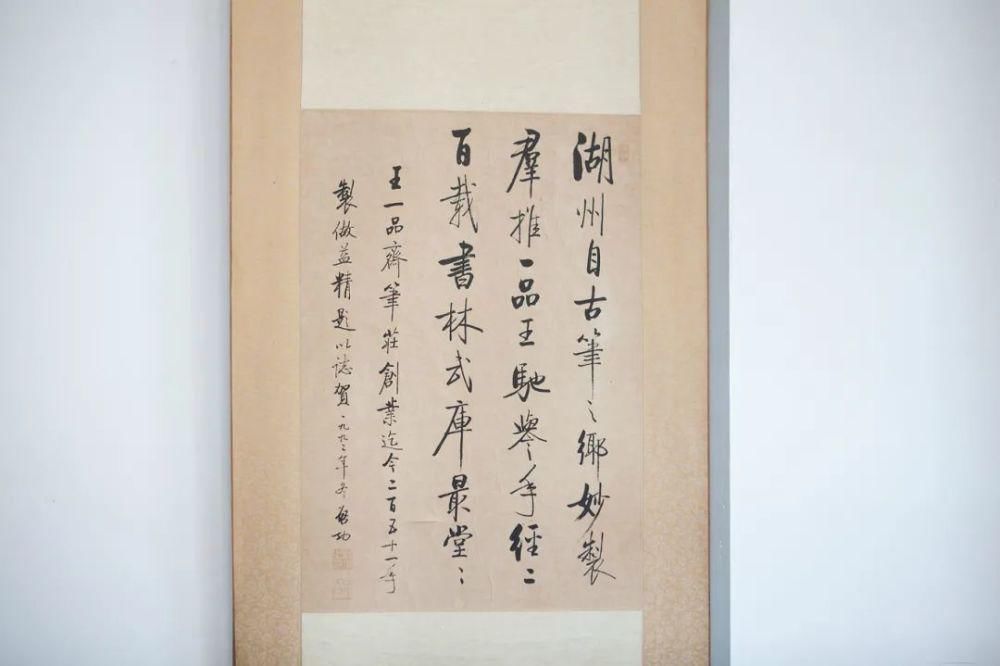 湖州自古筆之鄉妙製
羣推一品王馳譽年經二
百載書林武庫最堂〻
王一品齋筆莊創業迄今二百五十一年
製做益精題以誌賀一九九二年冬啓功